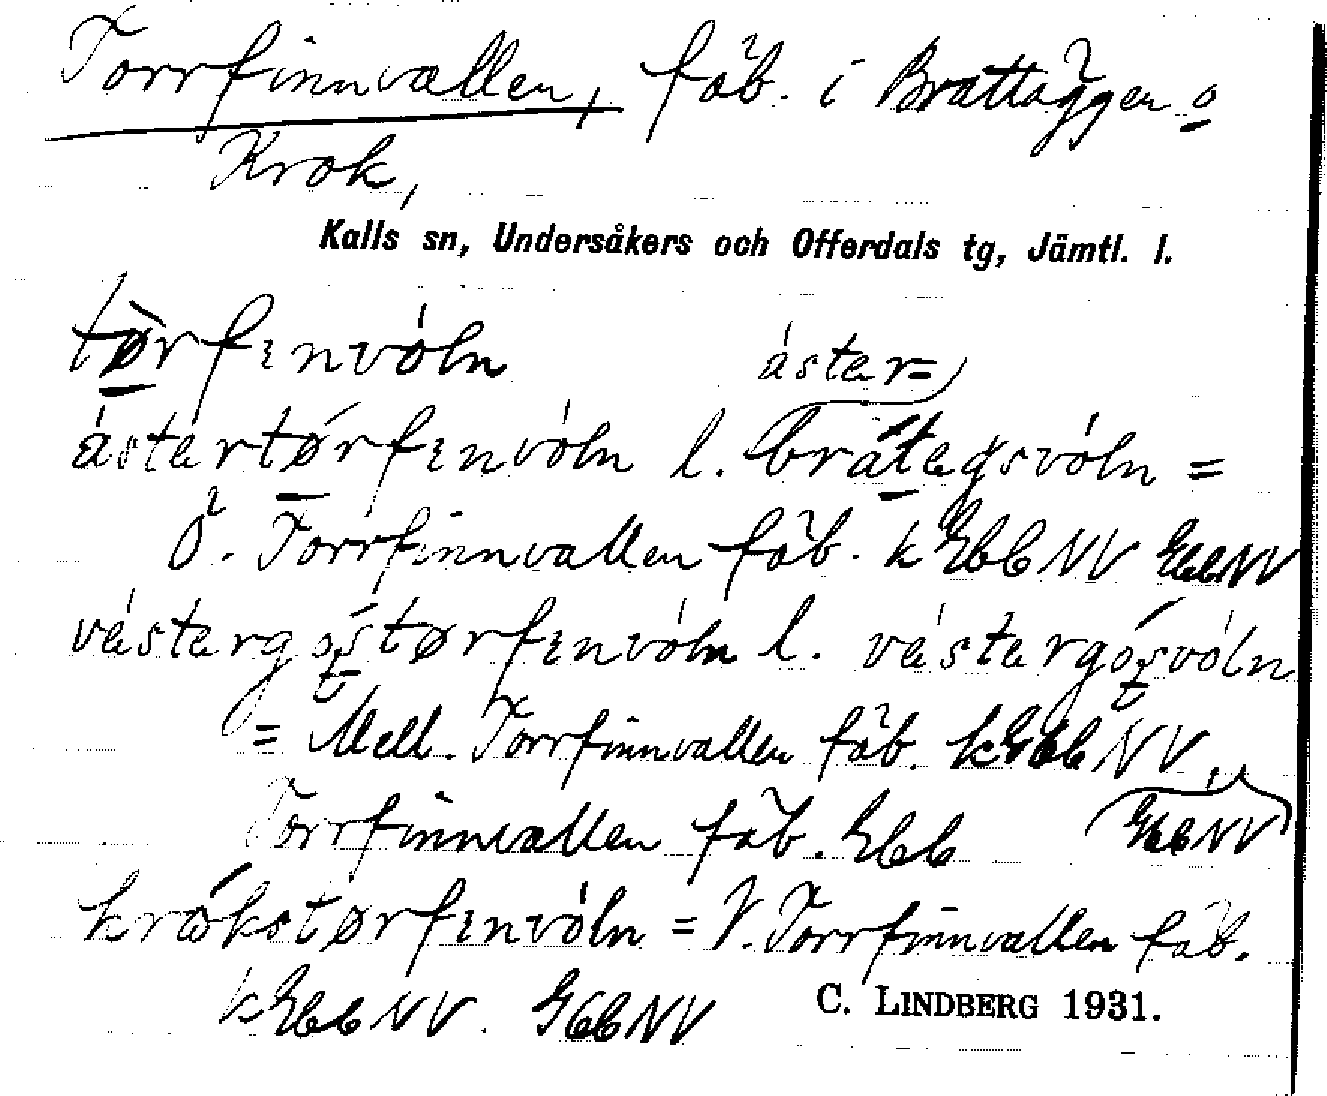 Torrfinnvallen, fäb. i Brattäggen o
Krok,
Kalls sn, Undersåkers och Offerdals tg, Jämtl. l.
tø̀rfınvóln
áster=
ástertørfınvóln l. brátegsvóln =
Ö. Torrfinnvallen fäb. k GbbNV GbbNV
vésterg tørfınvóln l. vésterg vóln
= Mell. Torrfinnvallen fäb. k Gbb NV,
Torrfinnvallen fäb. Gbb GbbNV
krókstørfınvóln = V. Torrfinnvallen fäb.
k GbbNV. GbbNV
C. LINDBERG 1931.